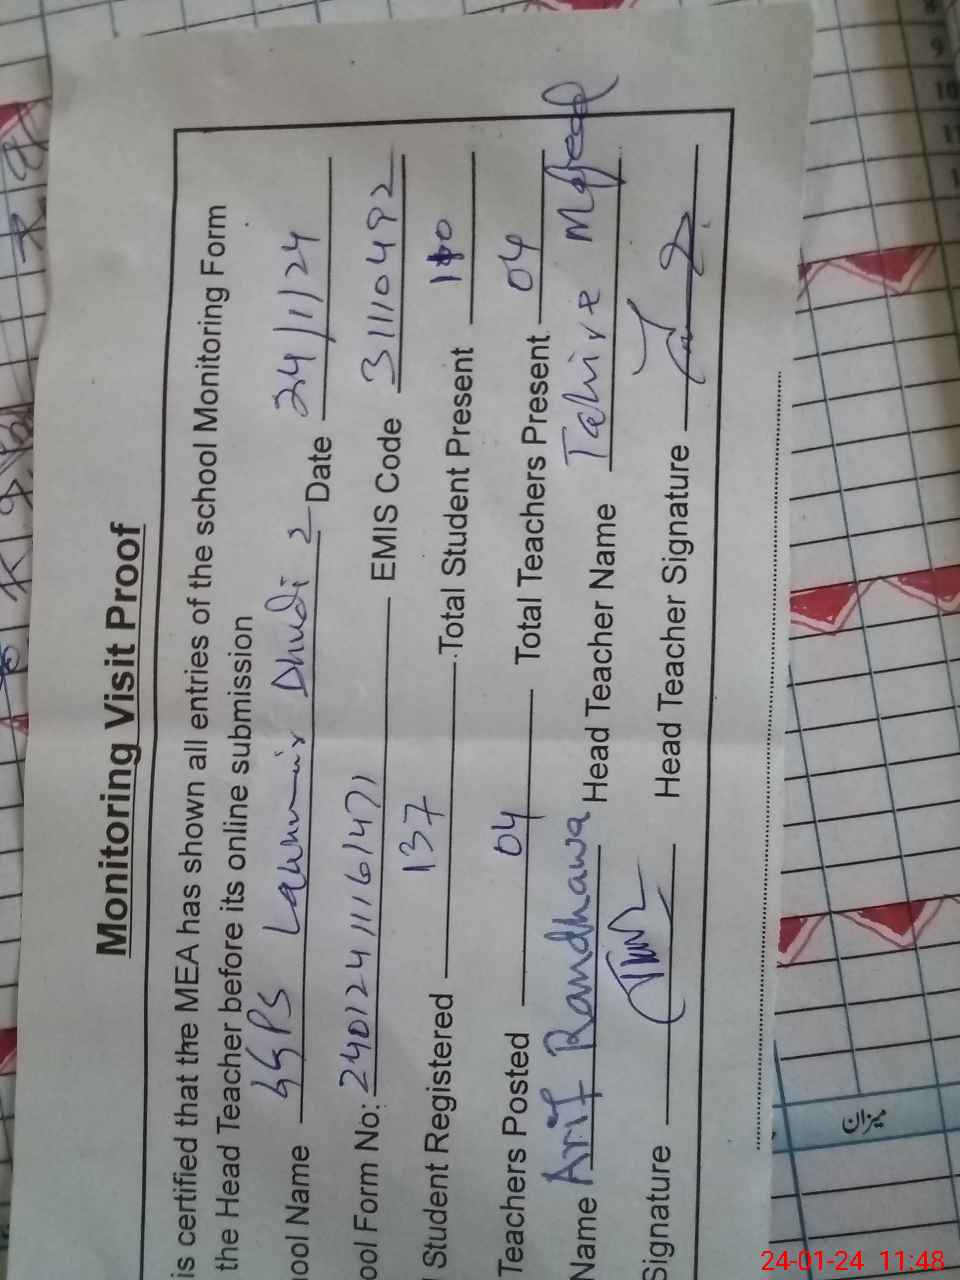 Monitoring Visit Proof
is certified that the MEA has shown all entries of the school Monitoring Form
the Head Teacher before its online submission
ool Name GGPS Dhudi 2 Date 24/1/24
ool Form No: EMIS Code 31110492
Student Registered 137 Total Student Present 110
Teachers Posted 04 Total Teachers Present 04
Name Arif Randhawa Head Teacher Name Tahira Majeed
Signature Head Teacher Signature
میزان
9
10
11
24-01-24 11:48